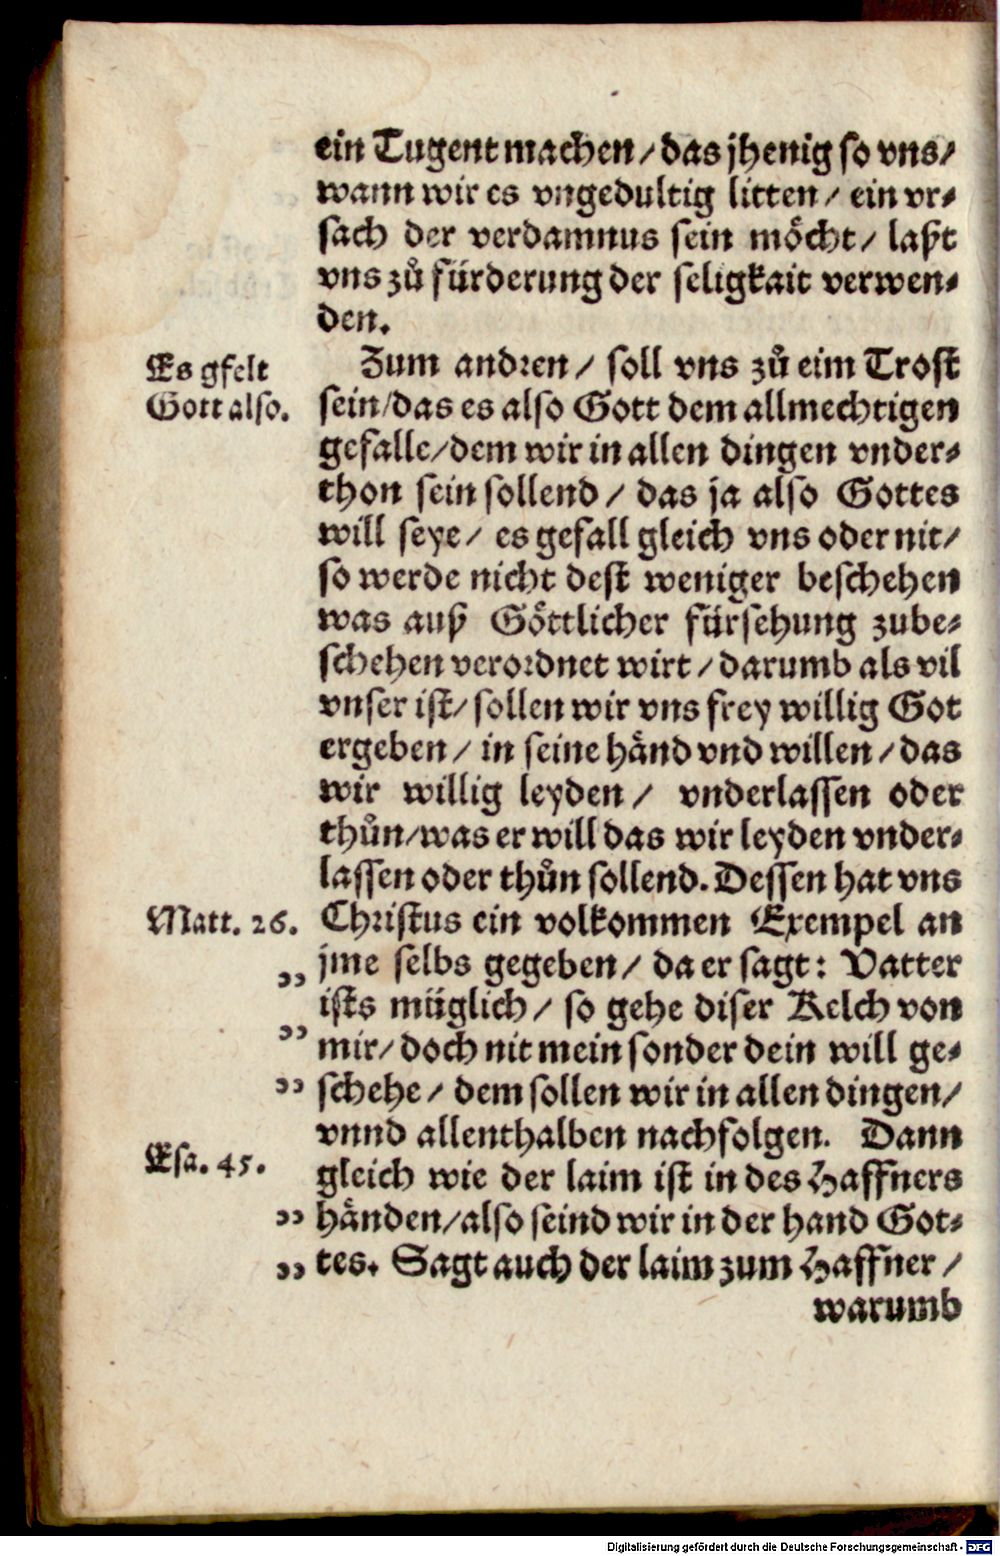 ein Tugent machen/ das jhenig so vns/
wann wir es vngedultig litten/ ein vr⸗
sach der verdamnus sein möcht/ laßt
vns zů fürderung der seligkait verwen⸗
den.
Es gfelt
Gott also.
Zum andren/ soll vns zů eim Trost
sein/das es also Gott dem allmechtigen
gefalle/dem wir in allen dingen vnder⸗
thon sein sollend/ das ja also Gottes
will seye/ es gefall gleich vns oder nit/
so werde nicht dest weniger beschehen
was auß Göttlicher fürsehung zube⸗
schehen verordnet wirt/ darumb als vil
vnser ist/ sollen wir vns frey willig Got
ergeben/ in seine händ vnd willen/ das
wir willig leyden/ vnderlassen oder
thůn/was er will das wir leyden vnder⸗
lassen oder thůn sollend. Dessen hat vns
Matt. 26.
Christus ein volkommen Exempel an
jme selbs gegeben/ da er sagt: Vatter
„ ists müglich/ so gehe diser Kelch von
„ mir/ doch nit mein sonder dein will ge⸗
„ schehe/ dem sollen wir in allen dingen/
vnnd allenthalben nachfolgen. Dann
Esa. 45.
gleich wie der laim ist in des Haffners
„ händen/also seind wir in der hand Got⸗
„ tes. Sagt auch der laim zum Haffner/
warumb
Digitalisierung gefördert durch die Deutsche Forschungsgemeinschaft - DFG